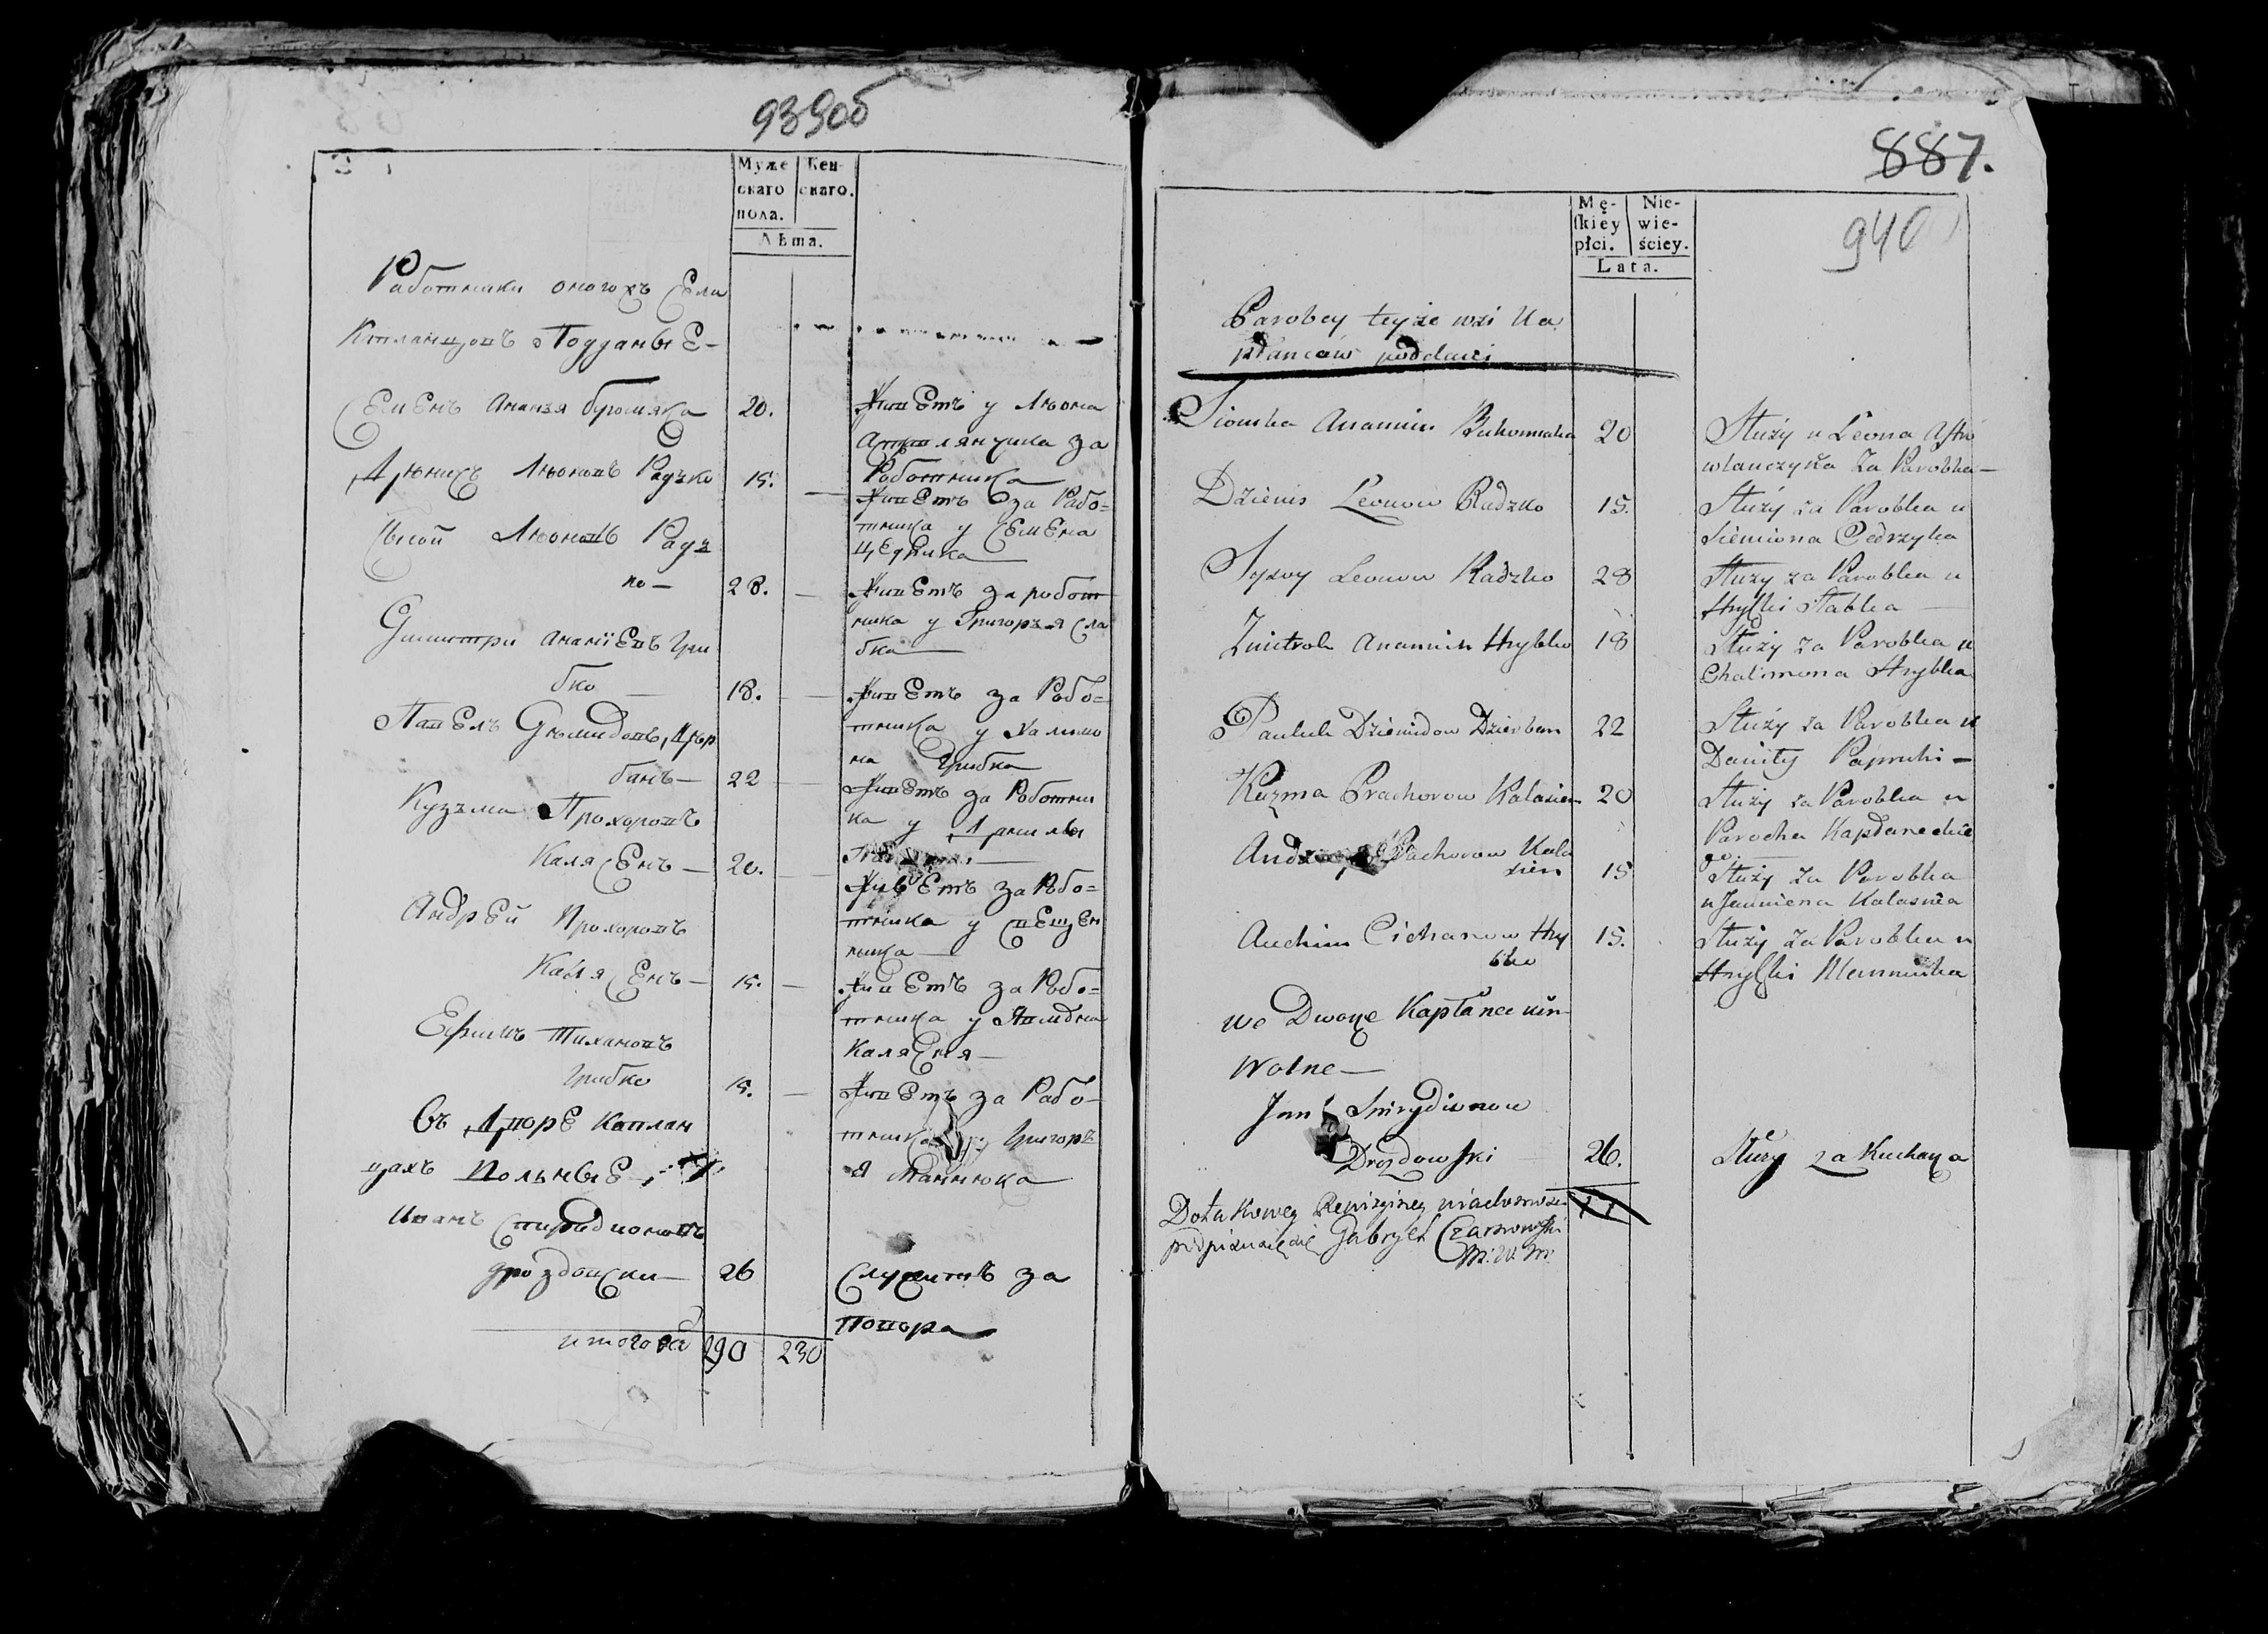 939об
Муже
скаго
пола.
Жен-
скаго.
Лѣта.
Работники оногожъ Села
Каплан­цовъ Подданые-
Семенъ Ананія 20.
Живетъ у Лѣона
за
Работника
Денисъ Лѣоновъ Радзко 15.
Живетъ за Рабо=
тника у Семена
Цедрика
Сысой Лѣоновъ Радз
ко — 28.
Живетъ за работ
ника у Григорья Сла
бка
Димитри Ананіевъ Гри
бко — 18.
Живетъ за Рабо=
тника у Халимо
на Грибка
Павелъ Демидовъ Дзер
банъ — 22
Живетъ за Работни
ка у Данилы
Кузьма Прохоровъ
Калясенъ — 20.
Живетъ за Рабо=
тника у Священ
ника
Андрей Прохоровъ
Калясенъ — 15.
Живетъ за Рабо=
тника у
Калясня —
Ефимъ Тихановъ
Грибко 15.
Живетъ за Рабо-
тника у Григорь
я Маннюка
Въ Дворе Каплан
цахъ Вольные
Иванъ Спиридионовъ
Дроздовски — 26
Служитъ за
Повора
итого 290 230
887.
940
Mę-
skiey
płci.
Nie-
wie-
ściey.
Lata.
Parobcy teyże wsi Ka
płancow poddani
Siomka Ananiin 20
Służy u Leona Astro
wlanczyka za Parobka —
Dzienis Leonow Radzko 15.
Służy za Parobka u
Siemiona Cedrzyka
Sysoy Leonow Radzko 28
Służy za Parobka u
Hryszki Słabka —
Zmitrok Ananiin Hrybko 18
Służy za Parobka u
Chalimona Hrybka
Pauluk Dziemidow Dzierban 22
Służy za Parobka u
Daniły Papruki —
Kuzma Prachorow Kalasien 20
Służy za Parobka u
Parocha Kapłaneckie
go
Prachorow Kala
sien 15
Służy za Parobka
u Kalasnia
Auchim Cichanow Hry
bko 15.
Służy za Parobka u
Hryszki Manniuka
we Dworze Kapłaneckim
Wolne —
Jan Spirydionow
Drozdowski 26.
Służy za Kucharza
Do takowey Rewizyiney wiadomosci
podpisuię się Gabryel Czarnowski